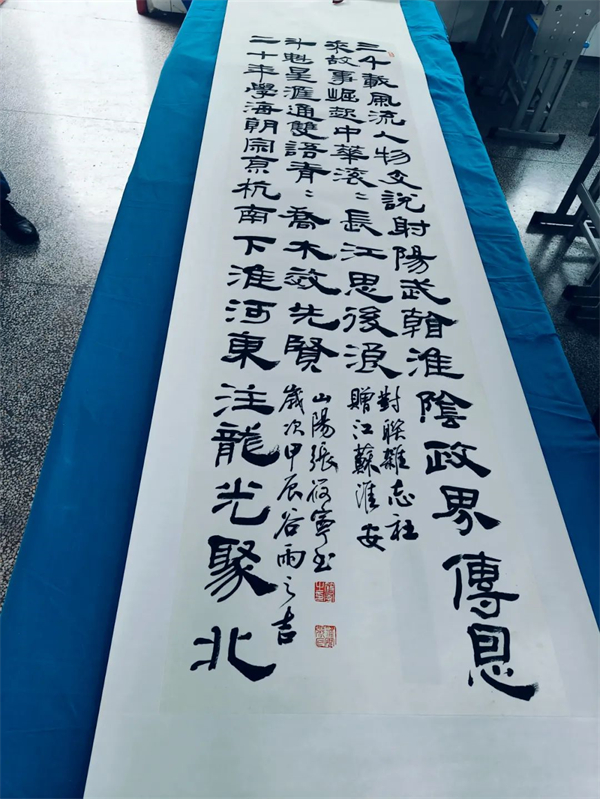 三千載風流人物文說射陽武韓淮陰政界傳恩
來故事崛起中華滾〻長江思後浪
對聯雜志社
贈江蘇淮安
二十年學海朝宗京杭南下淮河東注龍光聚北
斗魁星涯通雙語青〻喬木效先賢
歲次甲辰谷雨之吉
山陽張筱寧書